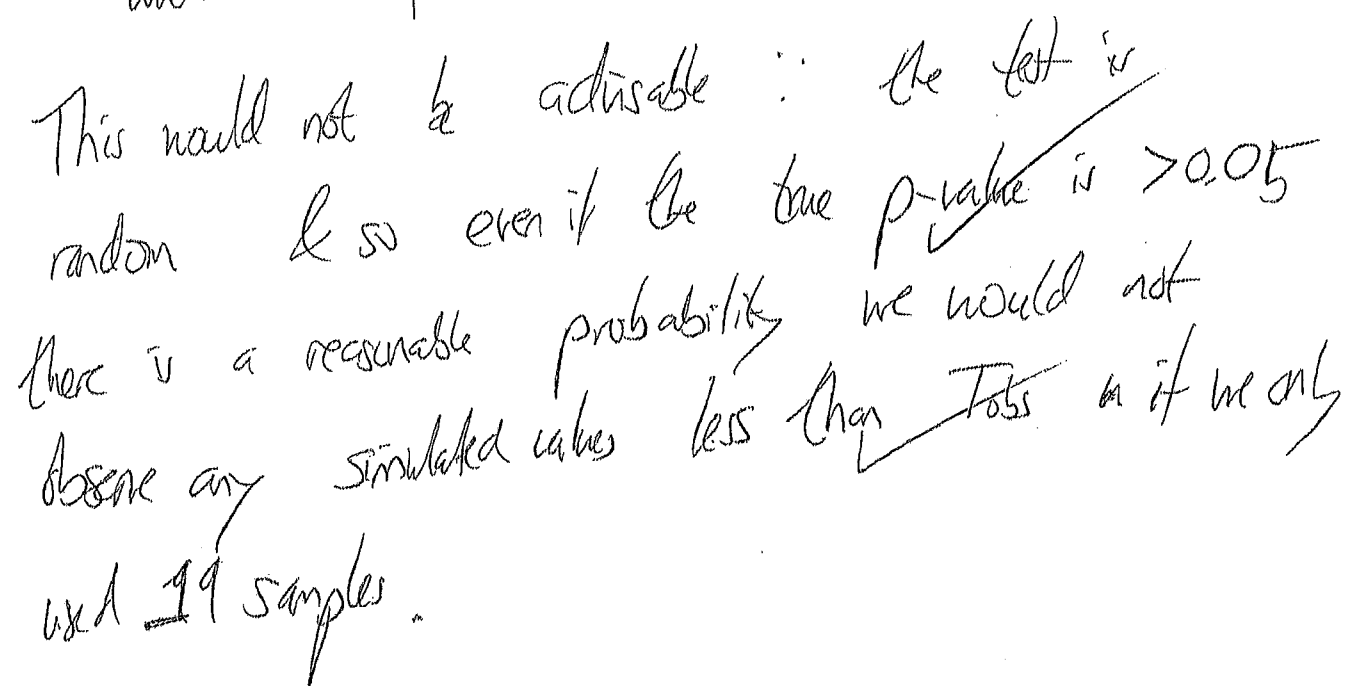 This would not be advisable ∵ the test is
random & so even if the true p-value is >0.05
there is a reasonable probability we would not
observe any simulated values less than Tobs if we only
used 19 samples.